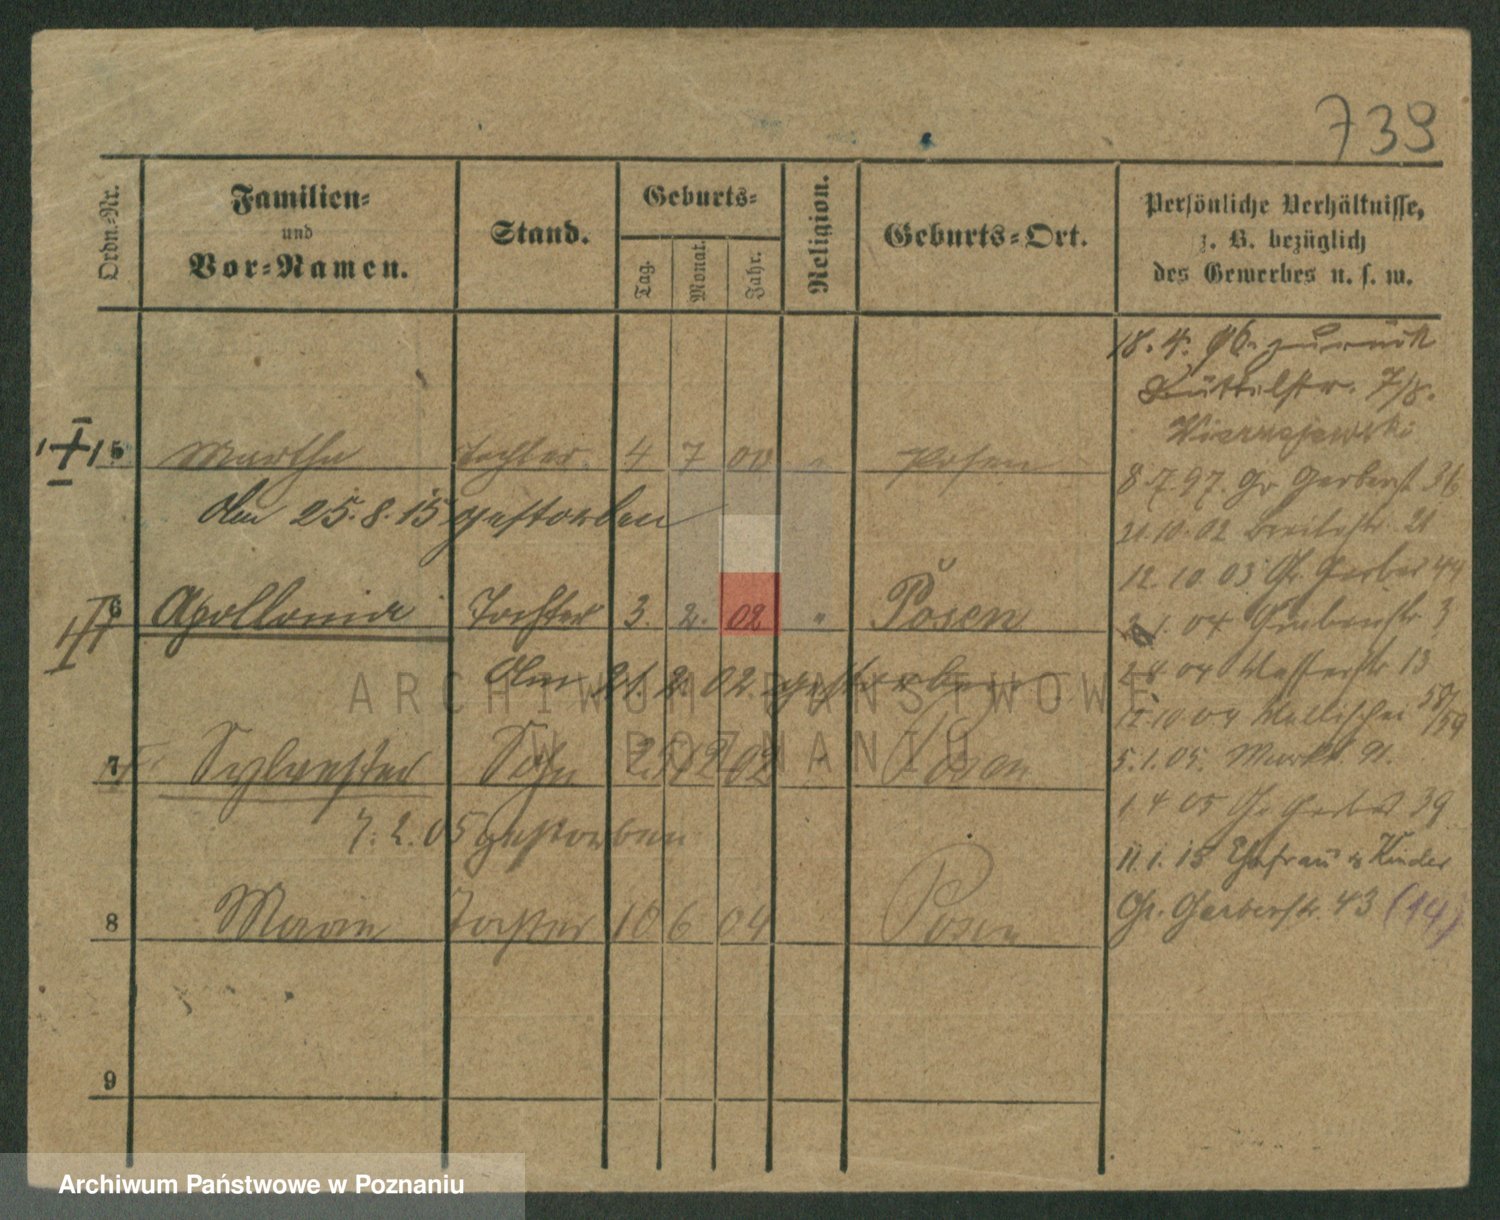 739
Ordn.-Nr.
Familien-
und
Vor-Namen.
Stand.
Geburts-
Tag.
Monat.
Jahr.
Religion.
Geburts-Ort.
Persönliche Verhältnisse,
z. B. bezüglich
des Gewerbes u. s. w.
18. 4. 96. zurück
Büttelstr. 7/8.
5 Martha Tochter 4 7 00 " Posen
8.7.97. Gr Gerberst 36
Am 25.8.15 gestorben
21.10.02 Breitestr 21
12.10.03 Gr. Gerber 44
6 Apollonia Tochter 3. 2. 02 " Posen
1. 04 Grabenstr 3
Am 21.2.02. gestorben
2 4 04 Wasserstr 13
12.10 04 Wallischei 58/59
7 Sylvester Sohn 12 02 " Posen
5.1.05. Markt 91.
7.2.05 gestorben
1 4 05 Gr Gerber 39
11.1.15 Ehefrau u Kinder
8 Marie Tochter 10 6 04 Posen
Gr. Gerberstr. 43 (14)
9
ARCHIWUM PAŃSTWOWE
W POZNANIU
Archiwum Państwowe w Poznaniu